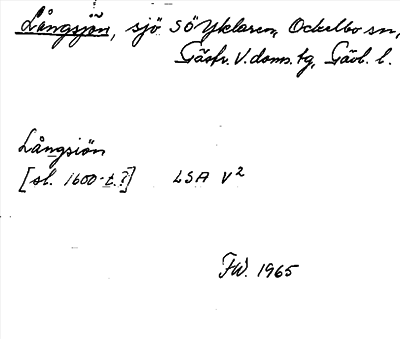 Långsjön, sjö SÖ Yklaren, Ockelbo sn,
Gästr. V. doms. tg, Gävl. l.
Långsiön
[sl. 1600-t.?] LSA V2
FW. 1965